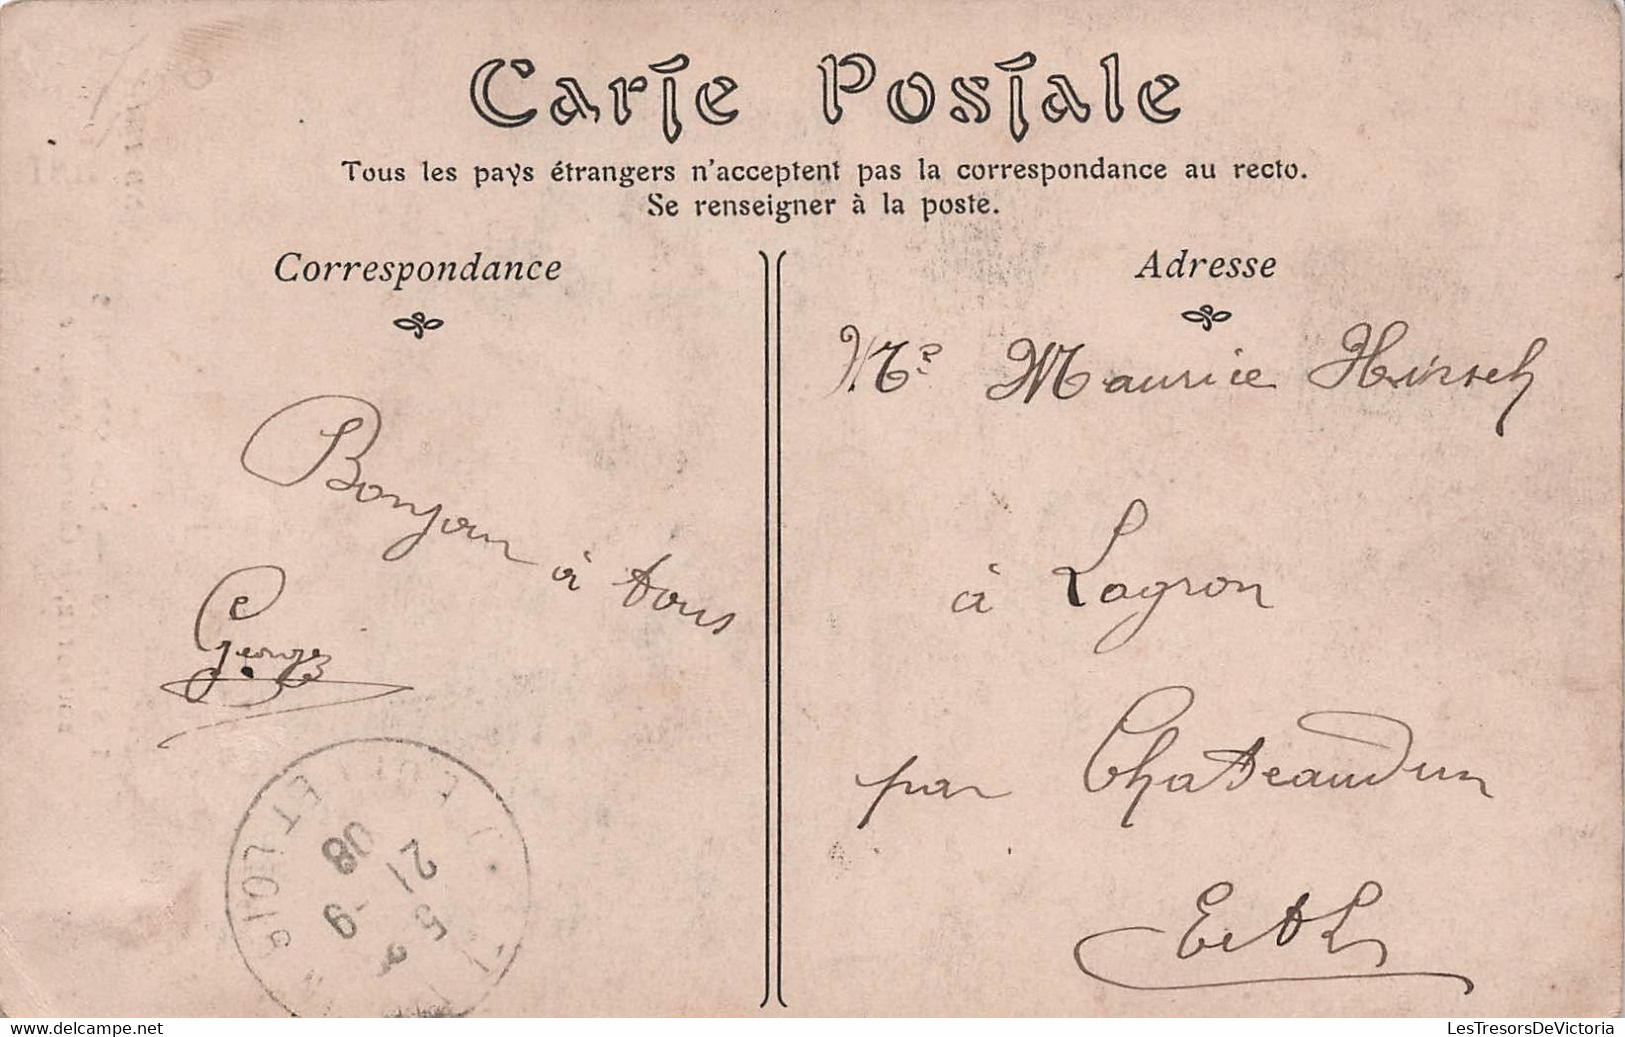 Carte Postale
Tous les pays étrangers n'acceptent pas la correspondance au recto.
Se renseigner à la poste.
Correspondance
Bonjour à tous
Georges
EURE ET LOIR
5 21
-9
08
Adresse
Mr Maurice Hirsch
à Logron
par Chateaudun
E et L
LesTresorsDeVictoria